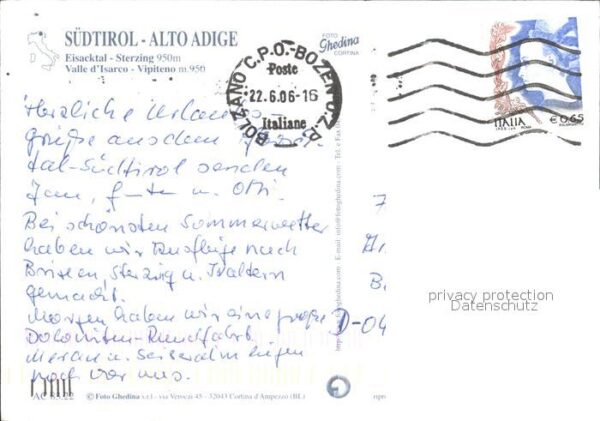 SÜDTIROL - ALTO ADIGE
Eisacktal - Sterzing 950m
Valle d'Isarco - Vipiteno m.950
FOTO
Ghedina
CORTINA
BOLZANO C.P.O.-BOZEN O.Z.P.
Poste
22.6.06-16
Italiane
ITALIA
€ 0,65
Herzliche Urlaubs-
grüße aus dem
tal-Südtirol senden
u.
Bei schönsten Sommerwetter
haben wir Ausflüge nach
Brixen, Sterzing u. Kaltern
gemacht.
Morgen haben wir eine große
Dolomiten-Rundfahrt.
Meran u. Seiseralm liegen
noch vor uns.
D-04
privacy protection
Datenschutz
AC 03.22
© Foto Ghedina s.r.l - via Verocai 45 - 32043 Cortina d'Ampezzo (BL)
ripro